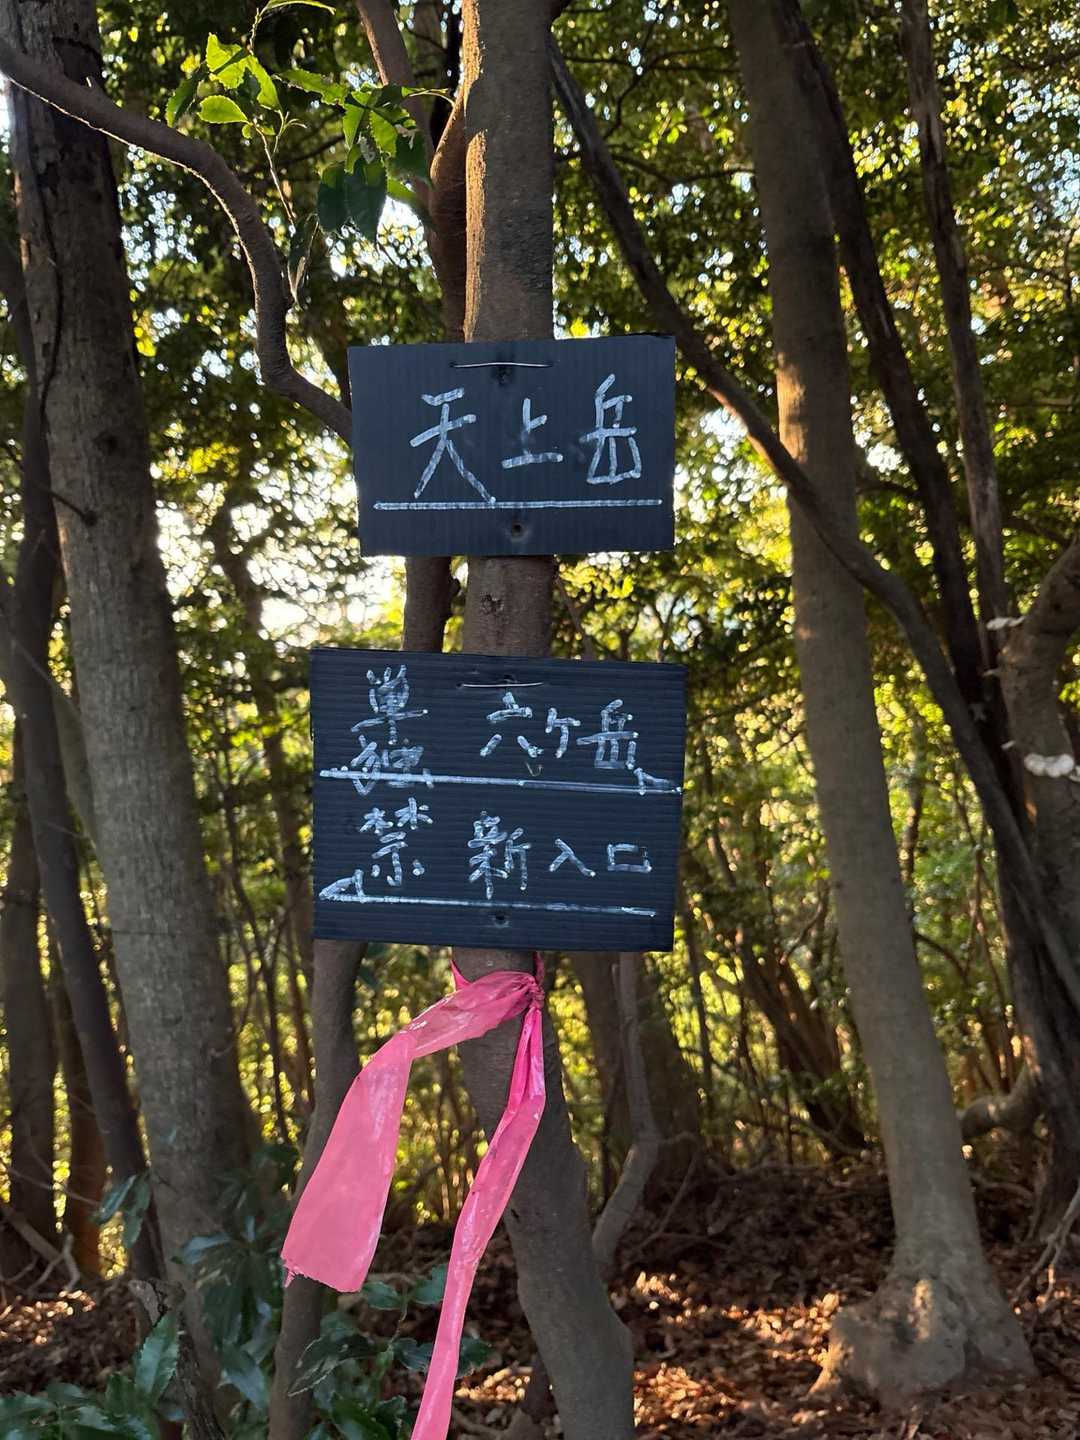 天上岳
単独 六ケ岳
禁 新入口